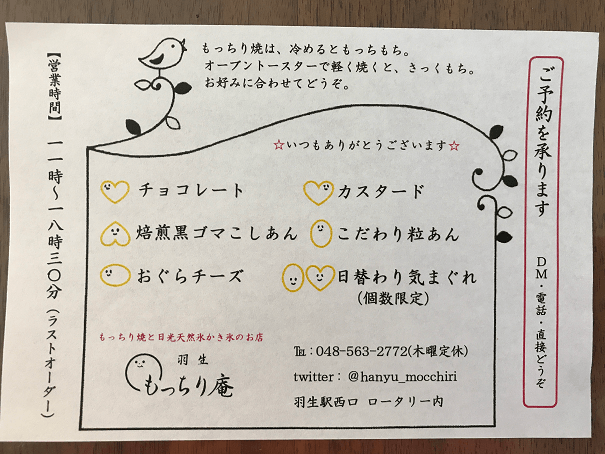 もっちり焼は、冷めるともっちもち。
オーブントースターで軽く焼くと、さっくもち。
お好みに合わせてどうぞ。
ご予約を承ります　DM・電話・直接どうぞ
【営業時間】一一時～一八時三〇分（ラストオーダー）
☆いつもありがとうございます☆
チョコレート
カスタード
焙煎黒ゴマこしあん
こだわり粒あん
おぐらチーズ
日替わり気まぐれ
(個数限定)
もっちり焼と日光天然氷かき氷のお店
羽生
もっちり庵
℡：048-563-2772(木曜定休)
twitter：@hanyu_mocchiri
羽生駅西口 ロータリー内